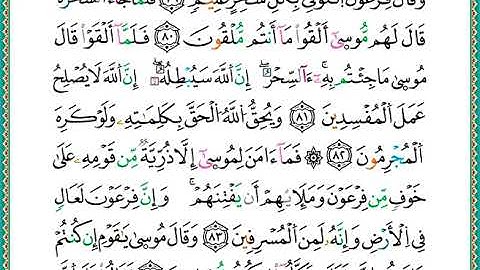 وَقَالَ فِرْعَوْنُ ٱئْتُونِى بِكُلِّ سَٰحِرٍ عَلِيمٍ ﴿٧٩﴾ فَلَمَّا جَآءَ ٱلسَّحَرَةُ
قَالَ لَهُم مُّوسَىٰٓ أَلْقُوا۟ مَآ أَنتُم مُّلْقُونَ ﴿٨٠﴾ فَلَمَّآ أَلْقَوْا۟ قَالَ
مُوسَىٰ مَا جِئْتُم بِهِ ٱلسِّحْرُ ۖ إِنَّ ٱللَّهَ سَيُبْطِلُهُۥٓ ۖ إِنَّ ٱللَّهَ لَا يُصْلِحُ
عَمَلَ ٱلْمُفْسِدِينَ ﴿٨١﴾ وَيُحِقُّ ٱللَّهُ ٱلْحَقَّ بِكَلِمَٰتِهِۦ وَلَوْ كَرِهَ
ٱلْمُجْرِمُونَ ﴿٨٢﴾ ۞ فَمَآ ءَامَنَ لِمُوسَىٰٓ إِلَّا ذُرِّيَّةٌ مِّن قَوْمِهِۦ عَلَىٰ
خَوْفٍ مِّن فِرْعَوْنَ وَمَلَإِي۟هِمْ أَن يَفْتِنَهُمْ ۚ وَإِنَّ فِرْعَوْنَ لَعَالٍ
فِى ٱلْأَرْضِ وَإِنَّهُۥ لَمِنَ ٱلْمُسْرِفِينَ ﴿٨٣﴾ وَقَالَ مُوسَىٰ يَٰقَوْمِ إِن كُنتُمْ